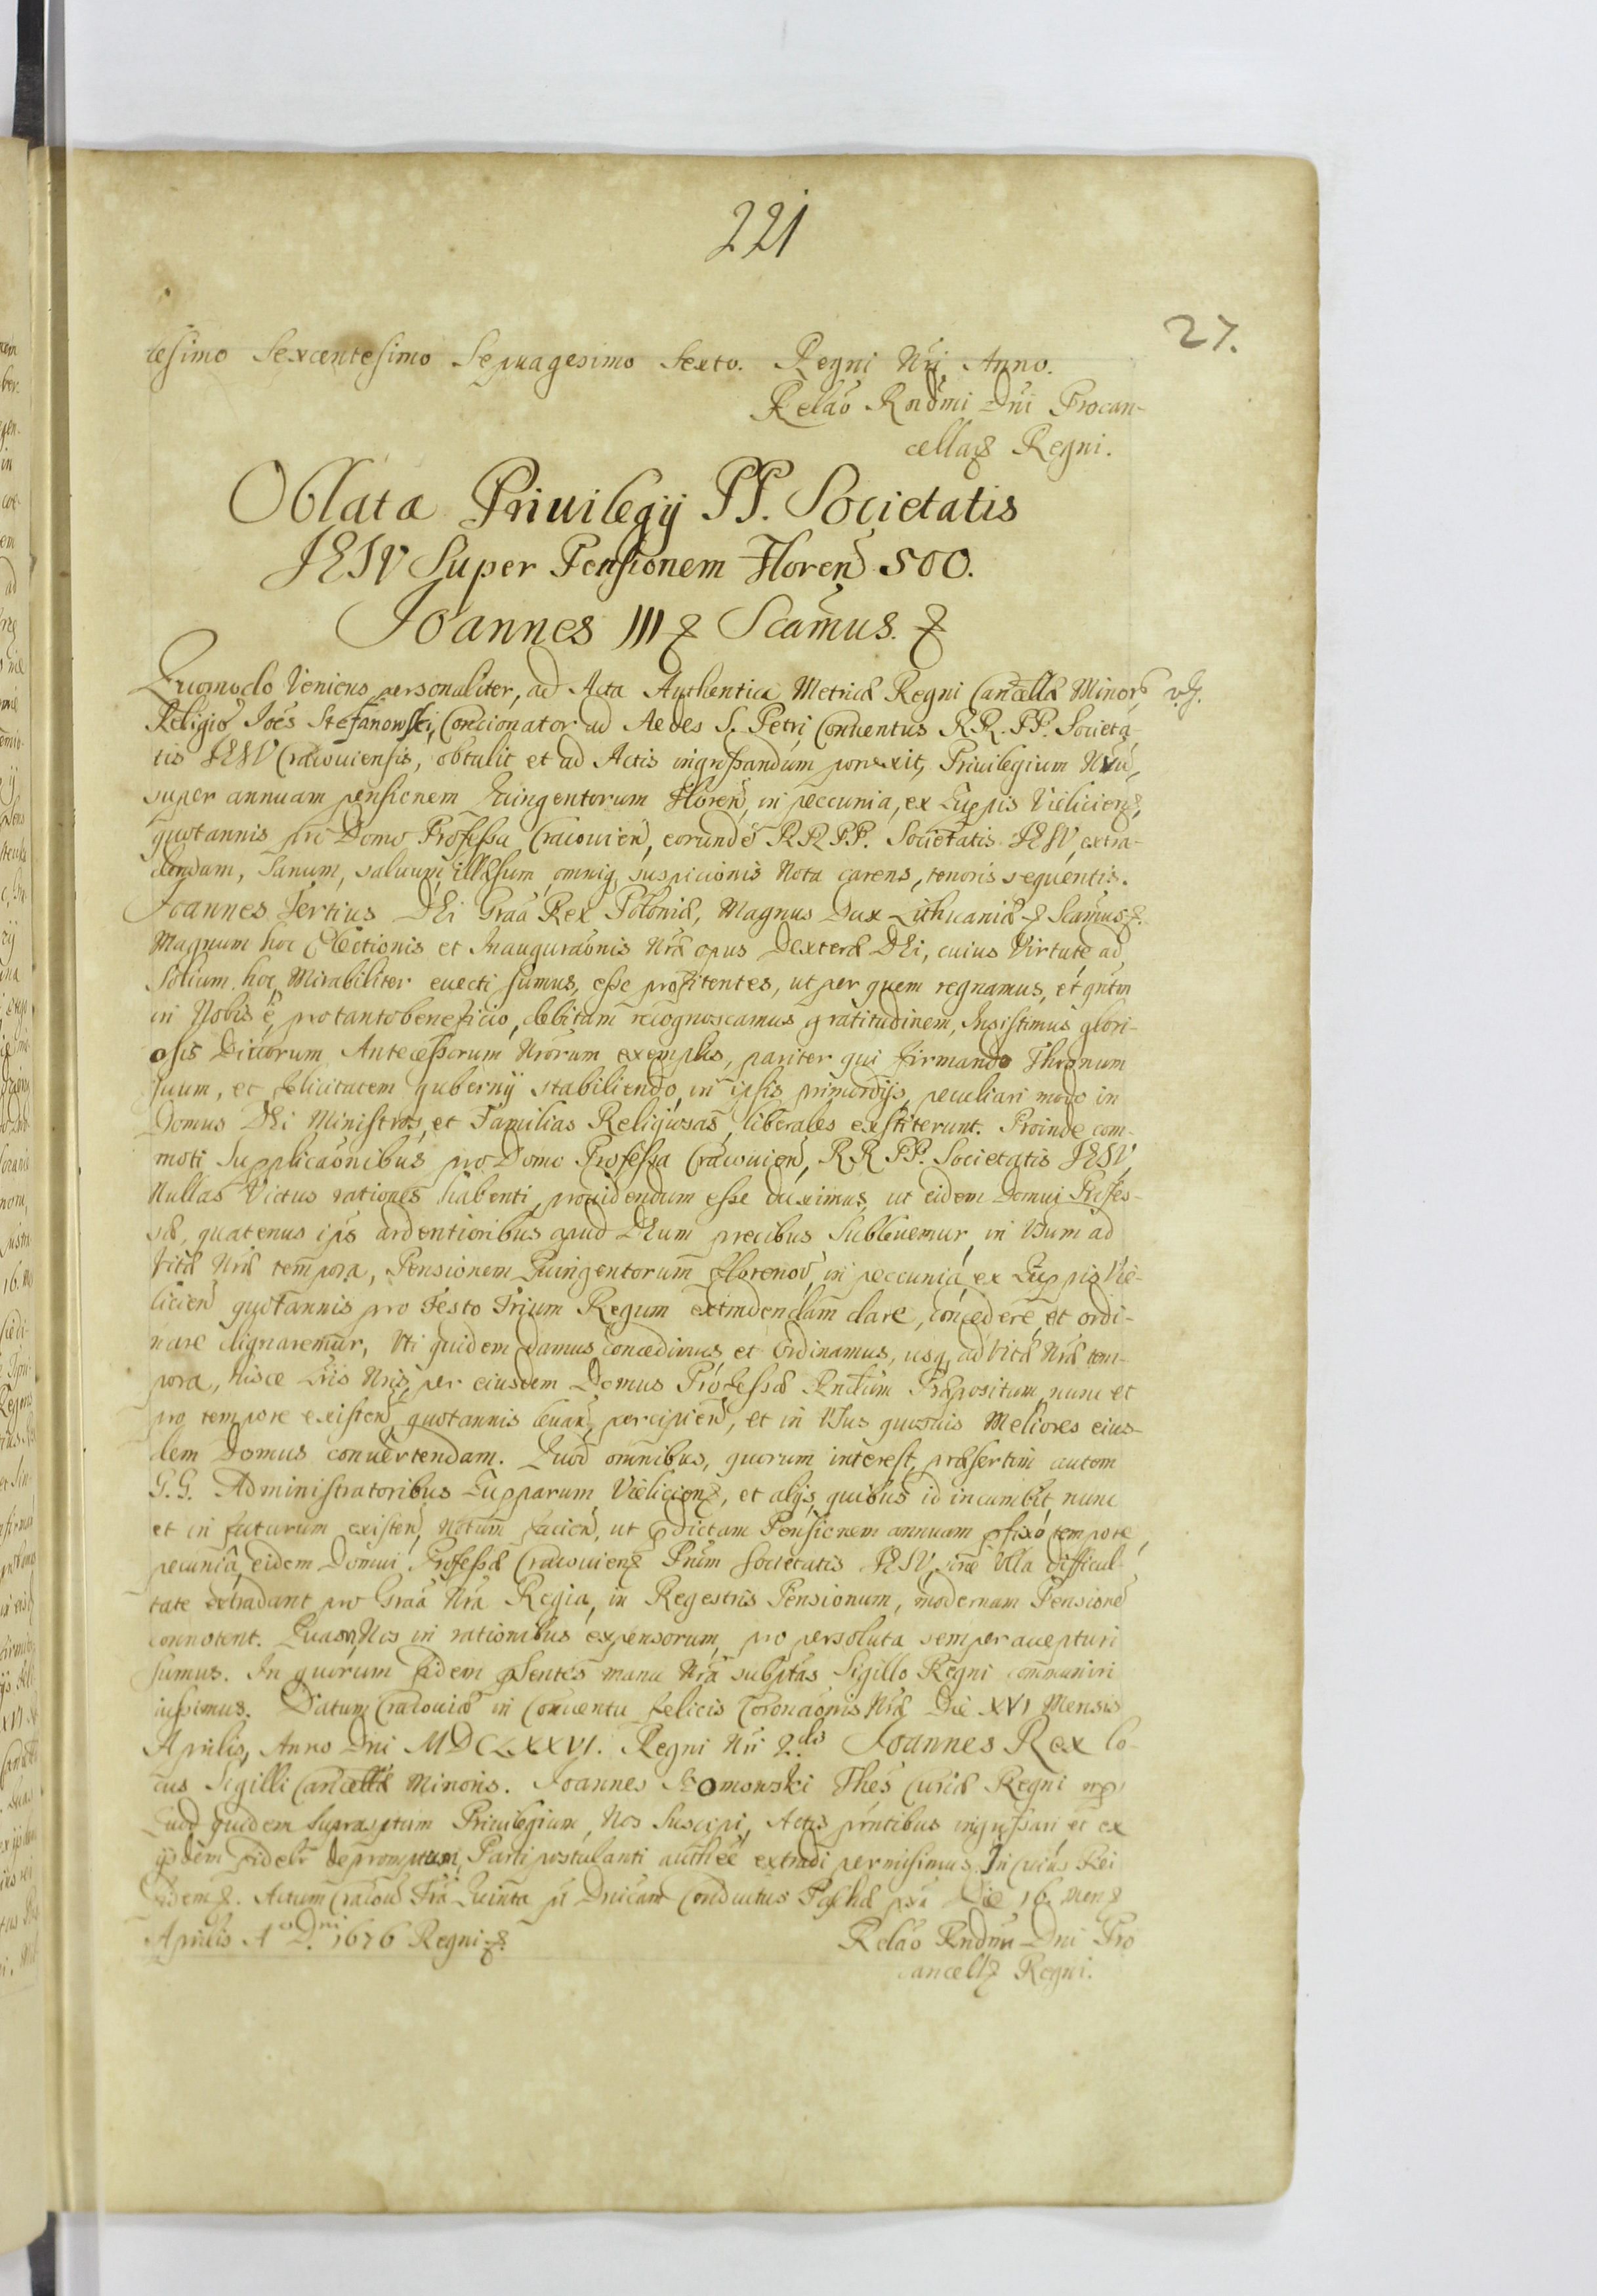 221
27.
tesimo Sexcentesimo Septuagesimo Sexto. Regni Nri Anno.
Relao Rndmi Dni Procan-
cellarz Regni.
Oblata Priuilegij PP. Societatis
JESV Super Pensionem Floren 500.
Joannes III z Scamus. z
Quomodo Veniens personaliter, ad Acta Authentica Metricæ Regni Cancellæ Minoris
Religios Joes Stefanowski, Concionator ad Aedes S. Petri Conuentus R.R. PP. Societa-
tis JESV Cracouiensis, obtulit et ad Actis ingrossandum porrexit, Priuilegium Nrũ,
super annuam pensionem Quingentorum Floren, in peccunia, ex Zuppis Vielicienz,
quotannis pro Domo Professa Cracouien, eorundẽ RR PP. Societatis JESV, extra-
dendam, Sanum, saluum, illæsum, omniq, suspicionis Nota carens, tenoris sequentis.
Joannes Tertius DEi Graa Rex Poloniæ, Magnus Dux Lithuaniæ z Scamus z.
Magnum hoc Electionis et Inauguraonis Nræ opus Dexteræ DEi, cuius Virtute ad
Solium hoc Mirabiliter euecti sumus, esse profitentes, ut per quem regnamus, et qntm
in Nobis ẽ, pro tanto beneficio, debitam recognoscamus gratitudinem, Insistimus glori-
osis Diuorum Antecessorum Nrorum exemplis, pariter qui firmando Thronum
suum, et felicitatem gubernij stabiliendo, in ipsis primordijs, peculiari modo in
Domus DEi Ministros, et Familias Religiosas, liberales exstiterunt. Proinde com-
moti Supplicaonibus pro Domo Professa Cracouien, RR PP. Societatis JESV,
Nullas Victus rationes habenti, prouidendum esse duximus, ut eidem Domui Profes-
sæ, quatenus ips ardentioribus apud DEum precibus Subleuemur, in Vsum ad
Vitæ Nræ tempora, Pensionem Quingentorum florenoR, in peccunia, ex Zuppis Vie-
licien quotannis pro Festo Trium Regum extradendam dare, concedere, et ordi-
nare dignaremur, Vti quidem damus concedimus et ordinamus, usq, ad Vitæ Nræ tem-
pora, hisce Lris Nris, per eiusdem Domus Professæ Rndum Præpositum nunc et
pro tempore existen, quotannis leuan, percipien, et in Vsus quosuis Meliores eius-
dem Domus conuertendam. Quod omnibus, quorum interest, præsertim autem
G.G. Administratoribus Zupparum Vielicienz, et alijs, quibus id incumbit nunc
et in futurum existen, Notum facien, ut pdictam Pensionem annuam pfixo tempore,
pecunia, eidem Domui Professæ Cracouienz Pnum Societatis JESV, sine Vlla difficul-
tate extradant pro Graa Nra Regia, in Regestris Pensionum, modernam Pensionẽ
connotent. Quam Nos in rationibus expensorum, pro persoluta semper accepturi
sumus. In quorum fidem psentes manu Nra subsptas Sigillo Regni communiri
iussimus. Datum Cracouiæ in Conuentu felicis Coronaonis Nræ Die XVI Mensis
Aprilis, Anno Dni MDCLXXVI. Regni Nri 2do Joannes Rex Lo-
cus Sigilli Cancellæ Minoris. Joannes Stomowski Thes Curiæ Regni mp
Quod quidem Suprasptum Priuilegium, Nos Suscipi, Actis prntibus ingrossari et ex
ijsdem fidelr depromptum, Parti postulanti authee extradi permisimus. In cuius Rei
fidem z. Actum Cracouiæ Fra Quinta pt Dnicam Conductus Paschæ pxa Die 16. Menz
Aprilis Ao Dni 1676 Regni z.
Relao Rndmi Dni Pro
cancellz Regni.